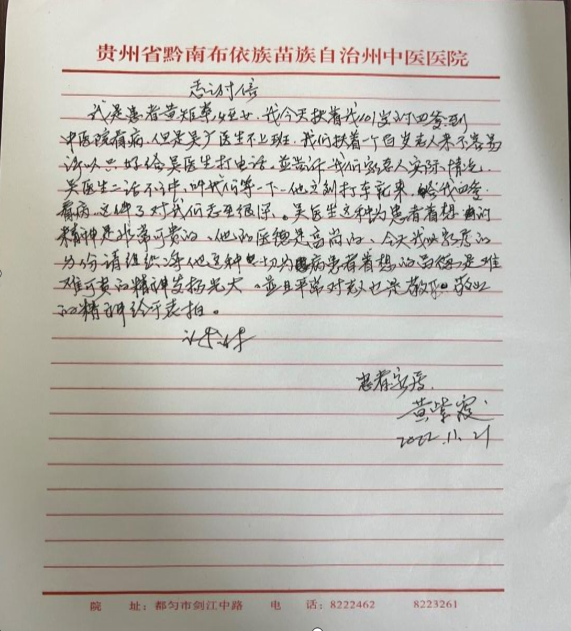 贵州省黔南布依族苗族自治州中医医院
感谢信
我是患者黄 女,我今天扶着我101岁 到
中医院看病,但是吴广医生不上班,我们扶着一个百岁老人来不容易
所以只好给吴医生打电话,並告诉我们家老人实际情况,
吴医生二话不讲,叫我们等一下,他立刻打车就来,给我
看病,这件了对我们感受很深。吴医生这种为患者着想的
精神是非常可贵的、他的医德是高尚的、今天我以家属的
身份请组织 他这种一切为病患者着想的品德是难
难可贵的精神发扬光大,並且平常对 也是敬 敬业
的精神给于表拍。
谢谢
患者家属
黄紫霞
2022.11.21
院 址:都匀市剑江中路 电 话:8222462 8223261